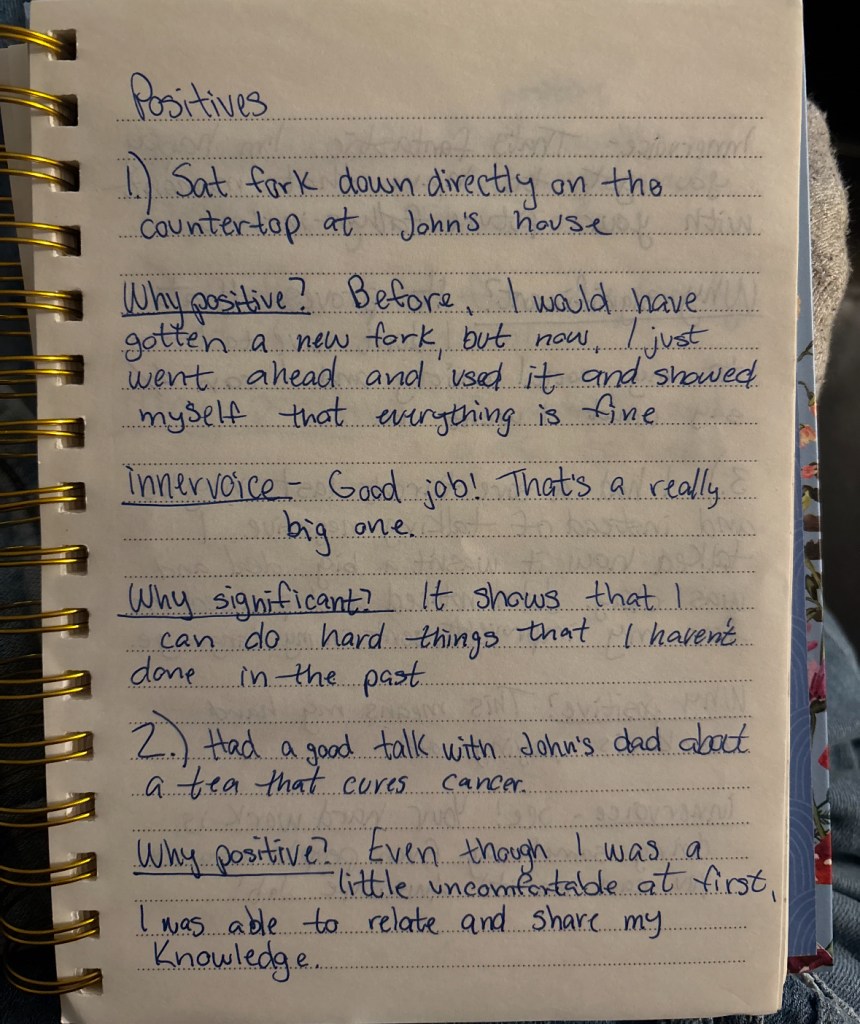 Positives
1.) Sat fork down directly on the
countertop at John's house
Why positive? Before, I would have
gotten a new fork, but now, I just
went ahead and used it and showed
myself that everything is fine
innervoice - Good job! That's a really
big one.
Why significant? It shows that I
can do hard things that I haven't
done in the past
2.) Had a good talk with John's dad about
a tea that cures cancer.
Why positive? Even though I was a
little uncomfortable at first,
I was able to relate and share my
Knowledge.